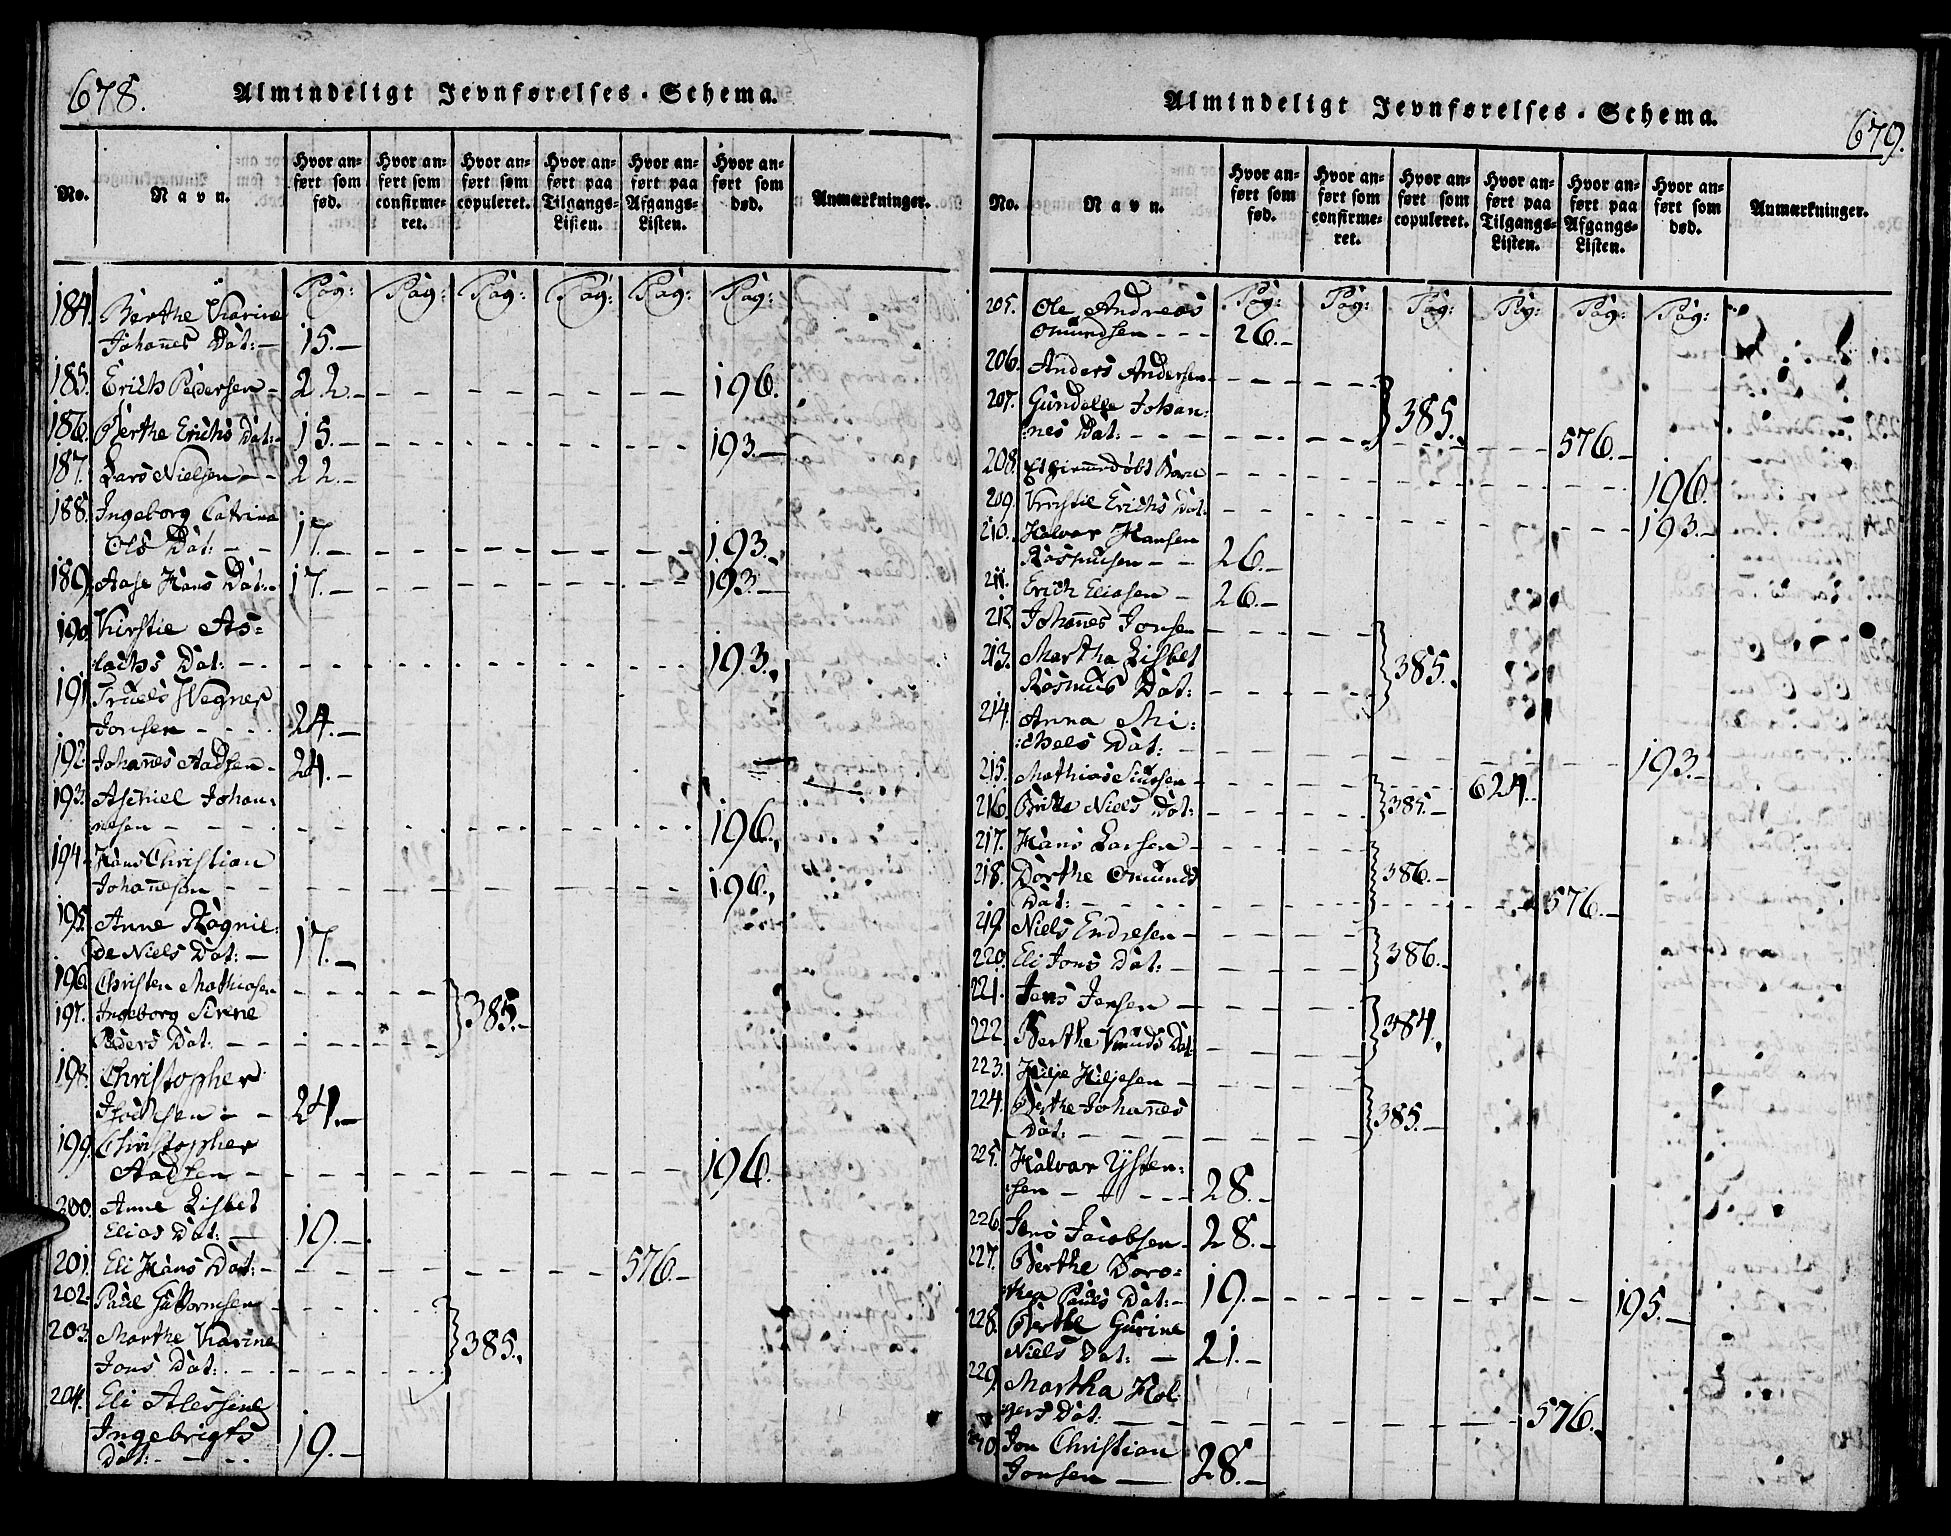 678.
Almindeligt Jevnførelses-Schema.
No.
Navn.
Hvor anført som fød.
Hvor anført som confirmeret.
Hvor anført som copuleret.
Hvor anført paa Tilgangs-Listen.
Hvor anført paa Afgangs-Listen.
Hvor anført som død.
Anmærkninger.
Pag: Pag: Pag: Pag: Pag: Pag:
184. Berthe Karine
Johannes Dat: 15.
185. Erich Pedersen 22. 196.
186. Berthe Erichs Dat: 15. 193.
187. Lars Nielsen 22.
188. Ingeborg Catrina
Ols Dat: 17. 193.
189. Aase Hans Dat: 17. 193.
190. Kirstie As=
lachs Dat: 193.
191. Truels Wegner
Jonsen 24.
192. Johannes Aadsen 24.
193. Aschiel Johan:
nesen 196.
194. Hans Christian
Johannesen 196.
195. Anne Ragnil:
de Niels Dat: 17.
196. Christen Mathiasen
197. Ingeborg Sirene 385.
Peders Dat:
198. Christopher
Isachsen 24.
199. Christopher
Aadsen 196.
200. Anne Lisbet
Elias Dat: 19.
201. Eli Hans Dat: 576.
202. Paul Guttormsen
203. Marthe Karine 385.
Jons Dat:
204. Eli Alersine
Ingebrigts
Dat: 19.
Almindeligt Jevnførelses-Schema.
679.
No.
Navn.
Hvor anført som fød.
Hvor anført som confirmeret.
Hvor anført som copuleret.
Hvor anført paa Tilgangs-Listen.
Hvor anført paa Afgangs-Listen.
Hvor anført som død.
Anmærkninger.
Pag: Pag: Pag: Pag: Pag: Pag:
205. Ole Andreas
Omundsen 26.
206. Anders Andersen
207. Gundelle Johan: 385.
nes Dat: 576.
208. Et Barn 196.
209. Kirstie Erichs Dat: 193.
210. Halvor Hansen
Rasmusen 26.
211. Erich Eliasen 26.
212. Johannes Jonsen
213. Martha Lisbet 385.
Rasmus Dat:
214. Anna Mi:
:chels Dat: 193.
215. Mathias Siursen 624.
216. Britta Niels Dat: 385.
217. Hans Larsen
218. Dorthe Omunds 386.
Dat: 576.
219. Niels Endresen
220. Eli Jons Dat: 386.
221. Jens Jensen
222. Berthe Knuds Dat: 384.
223. Hilje Hiljesen
224. Berthe Johannes
Dat: 385.
225. Halvor Ysten:
sen 28.
226. Jens Jacobsen 28.
227. Berthe Doro=
thea Pauls Dat: 19. 195.
228. Berthe Gurine
Niels Dat: 21.
229. Martha Hol
gers Dat: 576.
230. Jon Christian
Jonsen 28.